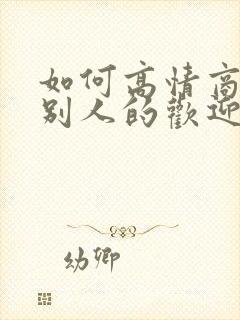 如何高情商
别人的歡迎
幼卿